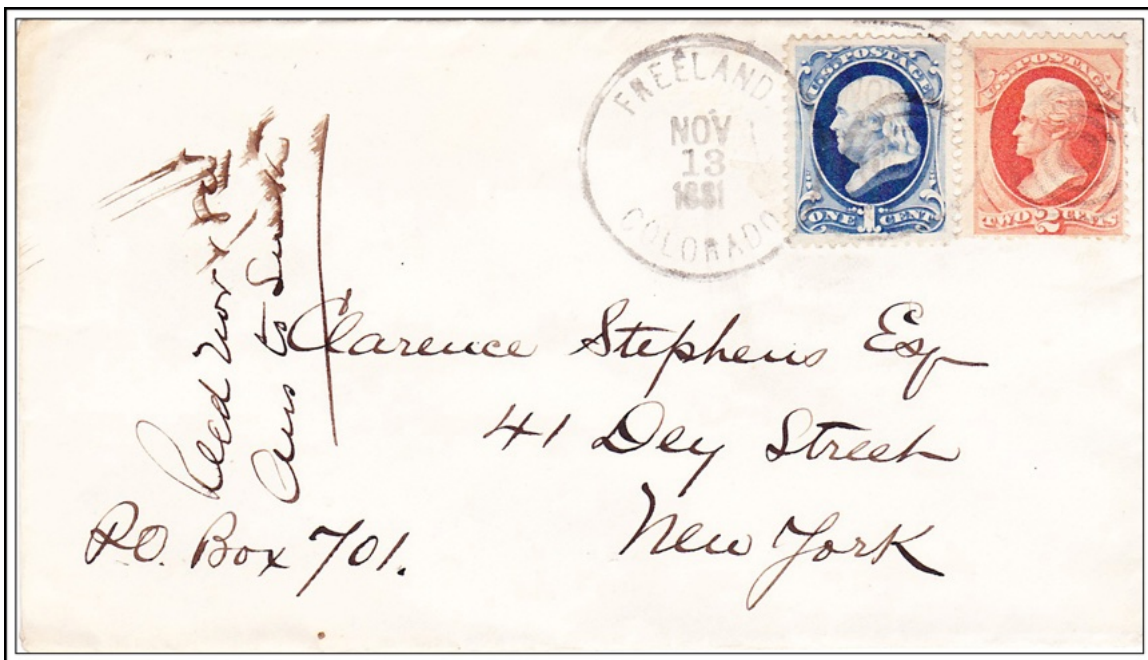 FREELAND.
NOV
13
1881
COLORADO
U.S. POSTAGE
ONE 1 CENT
U.S. POSTAGE
TWO 2 CENTS
Recd Nov
Ans
Clarence Stephens Esq
41 Dey Street
New York
P.O. Box 701.